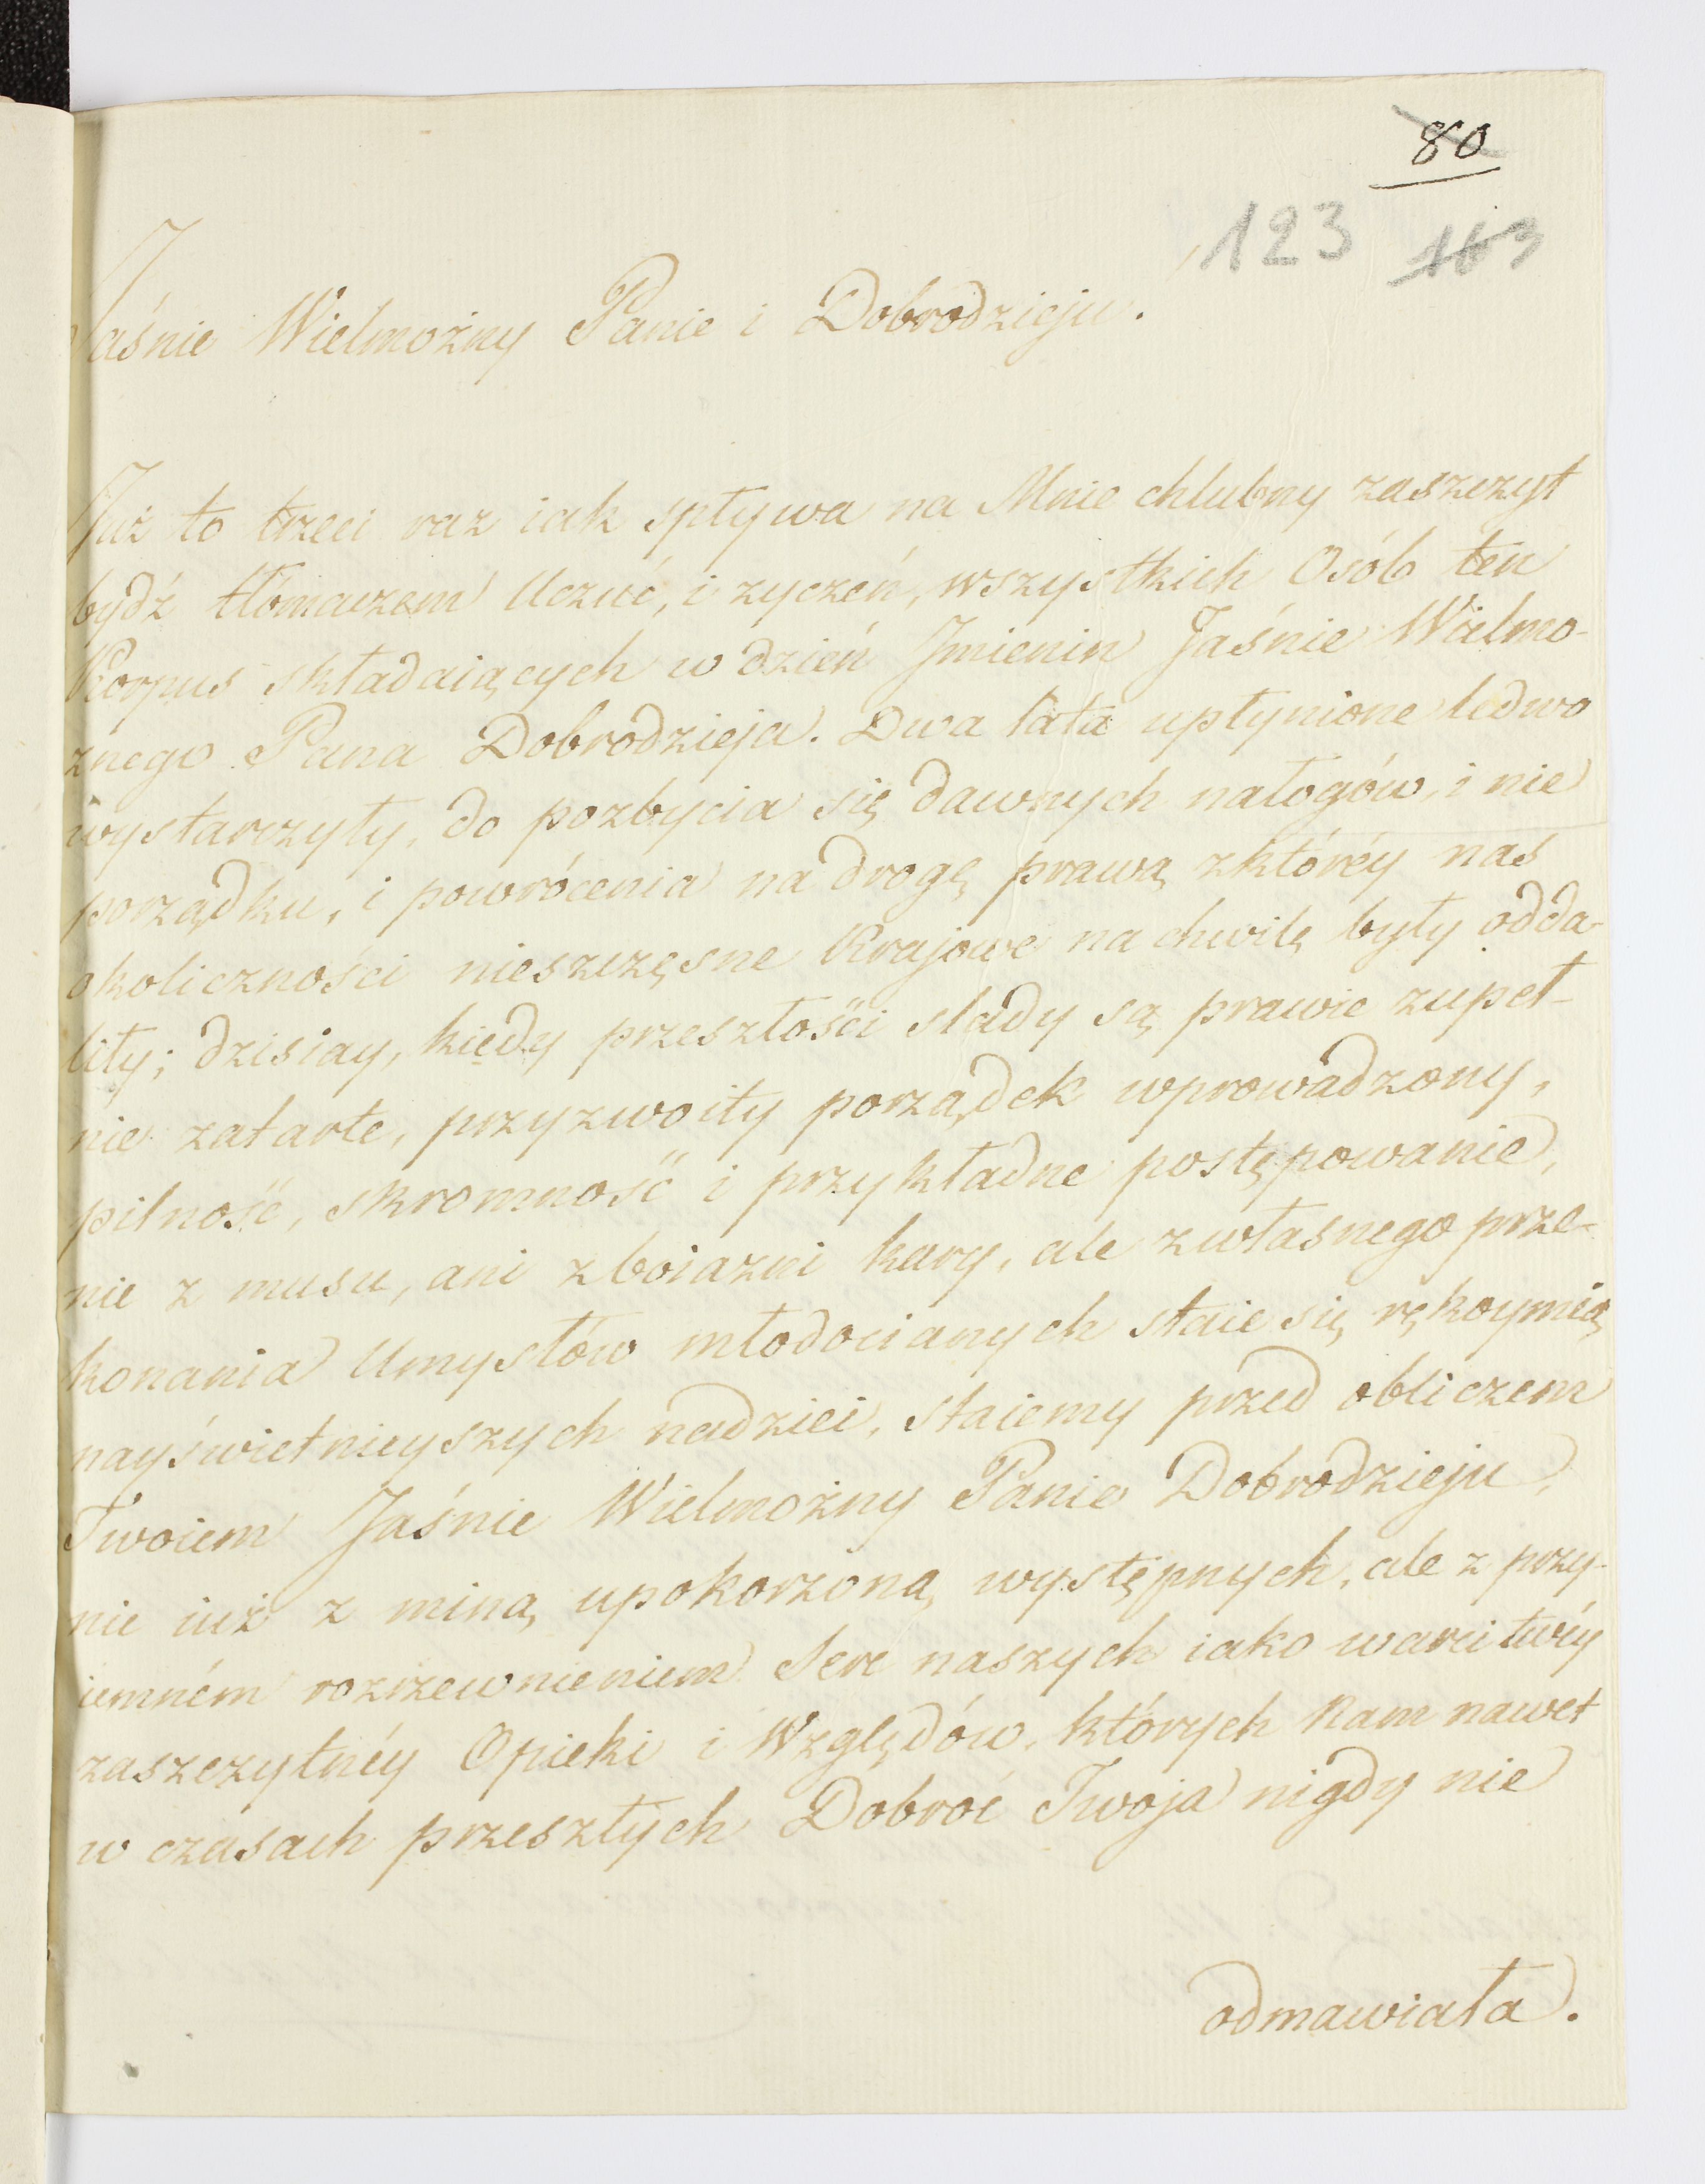 80
123 103
Jaśnie Wielmożny Panie i Dobrodzieju!
Już to trzeci raz iak spływa na Mnie chlubny zaszczyt
bydź tłómaczem Uczuć, i zyczeń, wszystkich Osób ten
Korpus składaiących w dzień Jmienin Jaśnie Wielmo-
żnego Pana Dobrodzieja. Dwa lata upłynione ledwo
wystarczyły, do pozbycia się dawnych nałogów, i nie
porządku, i powrócenia na drogę prawą zktóréy nas
okoliczności nieszczęsne Krajowe na chwilę były odda-
liły; dzisiay, kiedy przeszłości slady są prawie zupeł-
nie zatarte, przyzwoity porządek wprowadzony,
pilność, skromność i przykładne postępowanie,
nie z musu, ani zboiazni kary, ale zwłasnego prze-
konania Umysłów młodocianych staie się rękoymią
nayświetnieyszych nadziei, staiemy przed obliczem
Twoiem Jaśnie Wielmożny Panie Dobrodzieju,
nie iuż z miną upokorzoną występnych, ale z przy-
iemném rozrzewnieniem Serc naszych iako warci twéy
zaszczytnéy Opieki i Względów, których Nam nawet
w czasach przeszłych Dobroć Twoja nigdy nie
odmawiała.